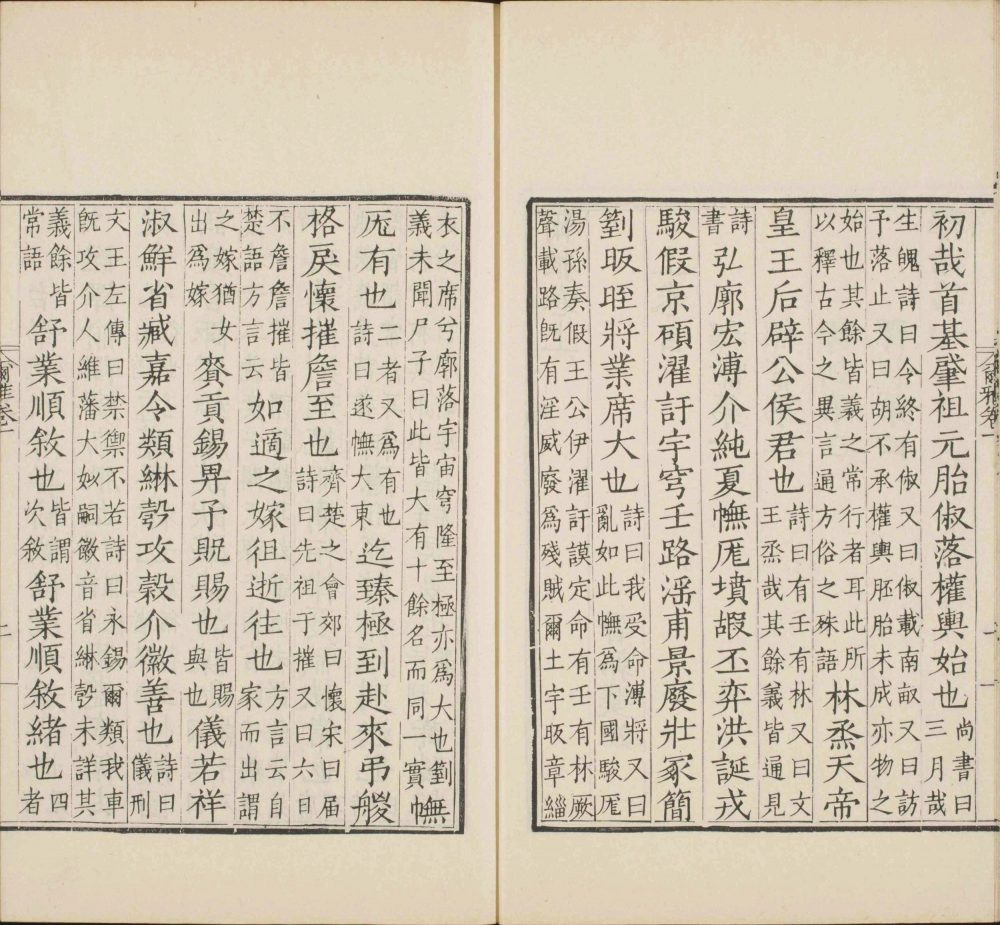 初哉首基肇祖元胎俶落權輿始也尚書曰三月哉
生魄詩曰令終有俶又曰俶載南畝又曰訪
予落止又曰胡不承權輿胚胎未成亦物之
始也其餘皆義之常行者耳此所以釋古今之異言通方俗之殊語林烝天帝
皇王后辟公侯君也詩曰有壬有林又曰文王烝哉其餘義皆通見
詩書弘廓宏溥介純夏幠厖墳嘏丕弈洪誕戎
駿假京碩濯訏宇穹壬路淫甫景廢壯冢簡
箌昄晊將業席大也詩曰我受命溥將又曰亂如此幠爲下國駿厖
湯孫奏假王公伊濯訏謨定命有壬有林厥
聲載路旣有淫威廢爲殘賊爾土宇昄章緇
衣之席兮廓落宇宙穹隆至極亦爲大也箌義未聞尸子曰此皆大有十餘名而同一實幠
厖有也二者又爲有也詩曰遂幠大東迄臻極到赴來弔艐
格戾懷摧詹至也齊楚之會郊曰懷宋曰届詩曰先祖于摧又曰六日
不詹詹摧皆楚語方言云如適之嫁徂逝往也方言云自家而出謂
之嫁猶女出爲嫁賚貢錫畀予貺賜也皆賜與也儀若祥
淑鮮省臧嘉令類綝彀攻穀介徽善也詩曰儀刑
文王左傳曰禁禦不若詩曰永錫爾類我車
旣攻介人維藩大姒嗣徽音省綝彀未詳其
義餘皆常語舒業順敘也皆謂次敘舒業順敘緒也四者
爾雅卷一